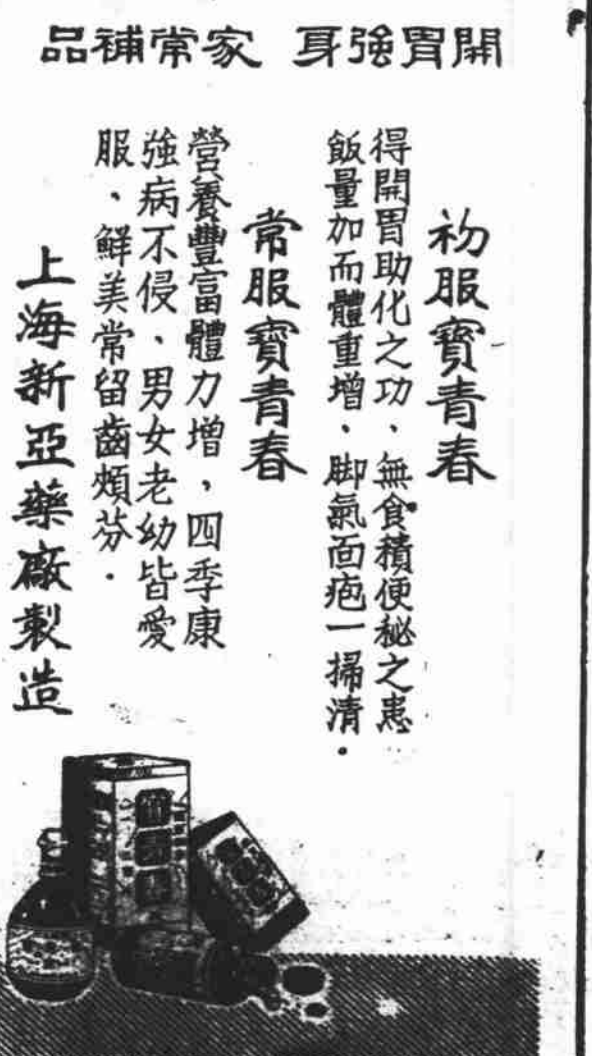 開胃強身 家常補品
初服寶青春
得開胃助化之功、無食積便秘之患
飯量加而體重增、脚氣面疱一掃清.
常服寶青春
營養豐富體力增，四季康
強病不侵、男女老幼皆愛
服、鮮美常留齒頰芬.
上海新亞藥廠製造